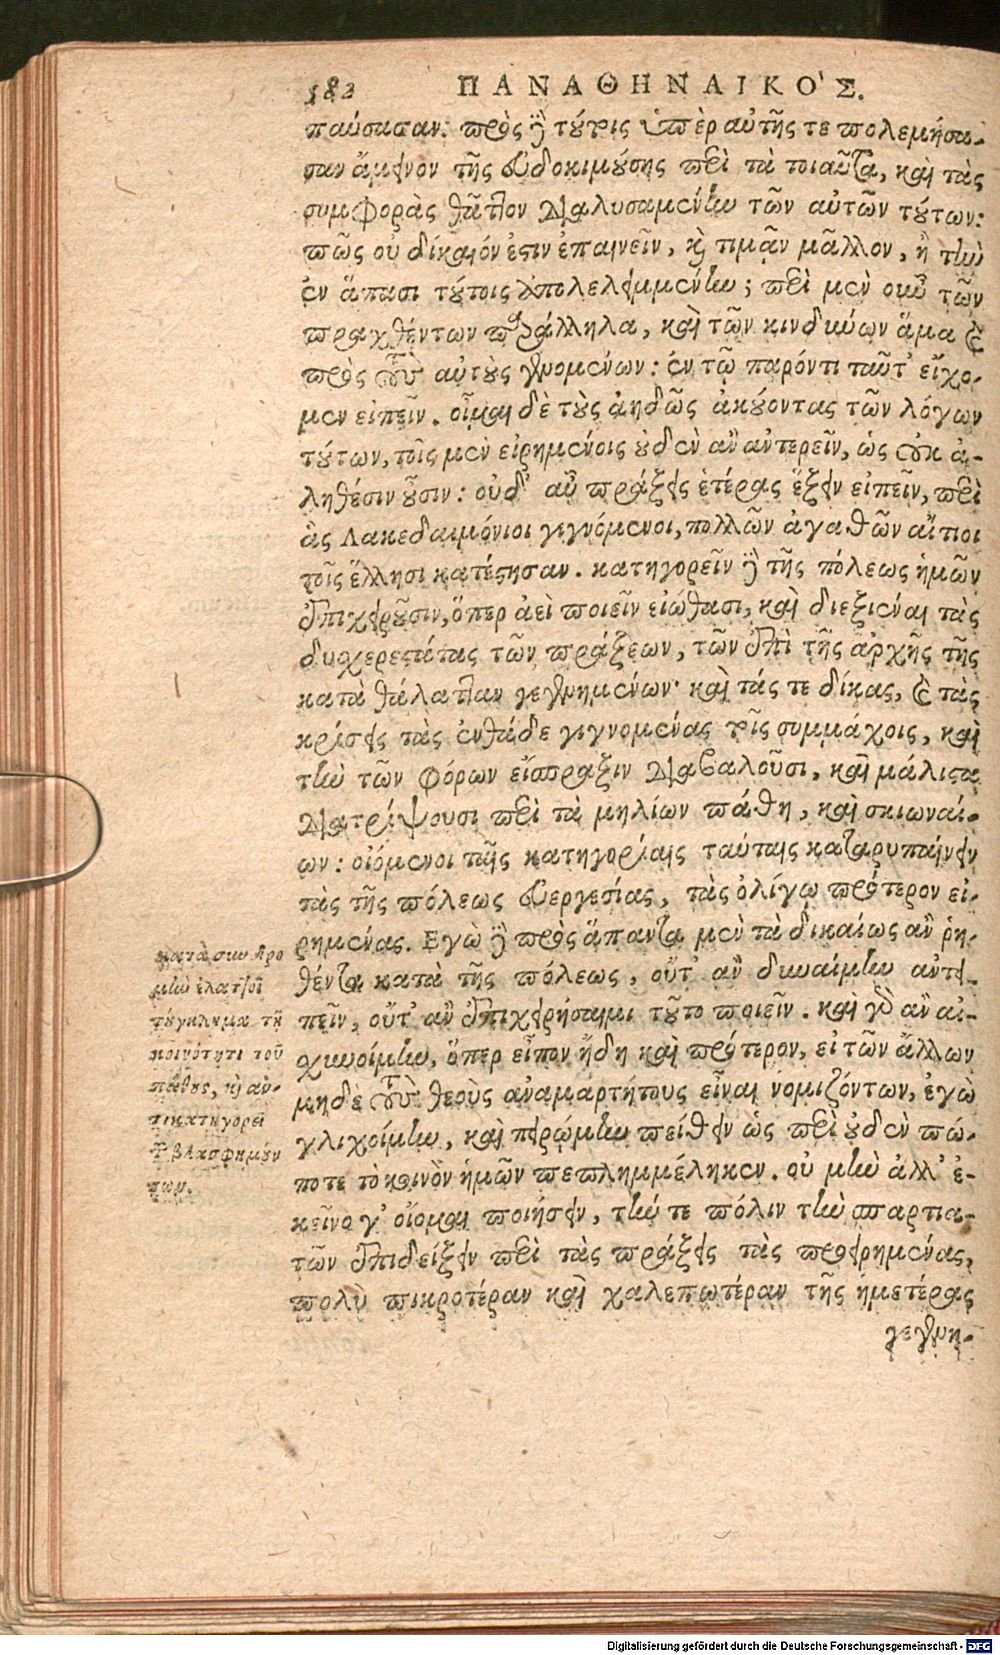 182 ΠΑΝΑΘΗΝΑΙΚΟ'Σ.
παύσασαν. πρὸς ἢ τούτοις ὑπὲρ αὐτῆς τε πολεμήσα-
σαν ἄμεινον τῆς εὐδοκιμούσης περὶ τὰ τοιαῦτα, καὶ τὰς
συμφορὰς θᾶττον διαλυσαμένην τῶν αὐτῶν τούτων:
πῶς οὐ δίκαιόν ἐστιν ἐπαινεῖν, καὶ τιμᾶν μᾶλλον, ἢ τὴν
ἐν ἅπασι τούτοις ἀπολελειμμένην; περὶ μὲν οὖν τῶν
πραχθέντων παράλληλα, καὶ τῶν κινδύνων ἅμα καὶ
πρὸς τοὺς αὐτοὺς γενομένων: ἐν τῷ παρόντι ταῦτ' εἴχο-
μεν εἰπεῖν. οἶμαι δὲ τοὺς ἀηδῶς ἀκούοντας τῶν λόγων
τούτων, τοῖς μὲν εἰρημένοις οὐδὲν ἂν ἀντερεῖν, ὡς οὐκ ἀ-
ληθέσιν οὖσιν: οὐδ' αὖ πράξεις ἑτέρας ἕξειν εἰπεῖν, περὶ
ἃς Λακεδαιμόνιοι γιγνόμενοι, πολλῶν ἀγαθῶν αἴτιοι
τοῖς ἕλλησι κατέστησαν. κατηγορεῖν δὲ τῆς πόλεως ἡμῶν
ἐπιχειροῦσιν, ὅπερ ἀεὶ ποιεῖν εἰώθασι, καὶ διεξιέναι τὰς
δυσχερεστάτας τῶν πράξεων, τῶν ἐπὶ τῆς ἀρχῆς τῆς
κατὰ θάλατταν γεγενημένων· καὶ τάς τε δίκας, καὶ τὰς
κρίσεις τὰς ἐνθάδε γιγνομένας τοῖς συμμάχοις, καὶ
τὴν τῶν φόρων εἴσπραξιν διαβαλοῦσι, καὶ μάλιστα
διατρίψουσι περὶ τὰ μηλίων πάθη, καὶ σκιωναί-
ων: οἰόμενοι ταῖς κατηγορίαις ταύταις καταρυπαίνειν
τὰς τῆς πόλεως εὐεργεσίας, τὰς ὀλίγῳ πρότερον εἰ-
ρημένας. Εγὼ δὲ πρὸς ἅπαντα μὲν τὰ δικαίως ἂν ῥη-
θέντα κατὰ τῆς πόλεως, οὔτ' ἂν δυναίμην ἀντει-
πεῖν, οὔτ' ἂν ἐπιχειρήσαιμι τοῦτο ποιεῖν. καὶ γὰρ ἂν αἰ-
σχυνοίμην, ὅπερ εἶπον ἤδη καὶ πρότερον, εἰ τῶν ἄλλων
μηδὲ τοὺς θεοὺς ἀναμαρτήτους εἶναι νομιζόντων, ἐγὼ
γλιχοίμην, καὶ πειρῴμην πείθειν ὡς περὶ οὐδὲν πώ-
ποτε τὸ κοινὸν ἡμῶν πεπλημμέληκεν. οὐ μὴν ἀλλ' ἐ-
κεῖνο γ' οἴομαι ποιήσειν, τήν τε πόλιν τὴν σπαρτια-
τῶν ἐπιδείξειν περὶ τὰς πράξεις τὰς προειρημένας,
πολὺ πικροτέραν καὶ χαλεπωτέραν τῆς ἡμετέρας
γεγενη-
κατὰ συνδρο
μὴν ἐλαττοῖ
τοὔγκλημα τῇ
κοινότητι τοῦ
πάθους, καὶ ἀν-
τικατηγορεῖ
τ βλασφημούν
των.
Digitalisierung gefördert durch die Deutsche Forschungsgemeinschaft - DFG